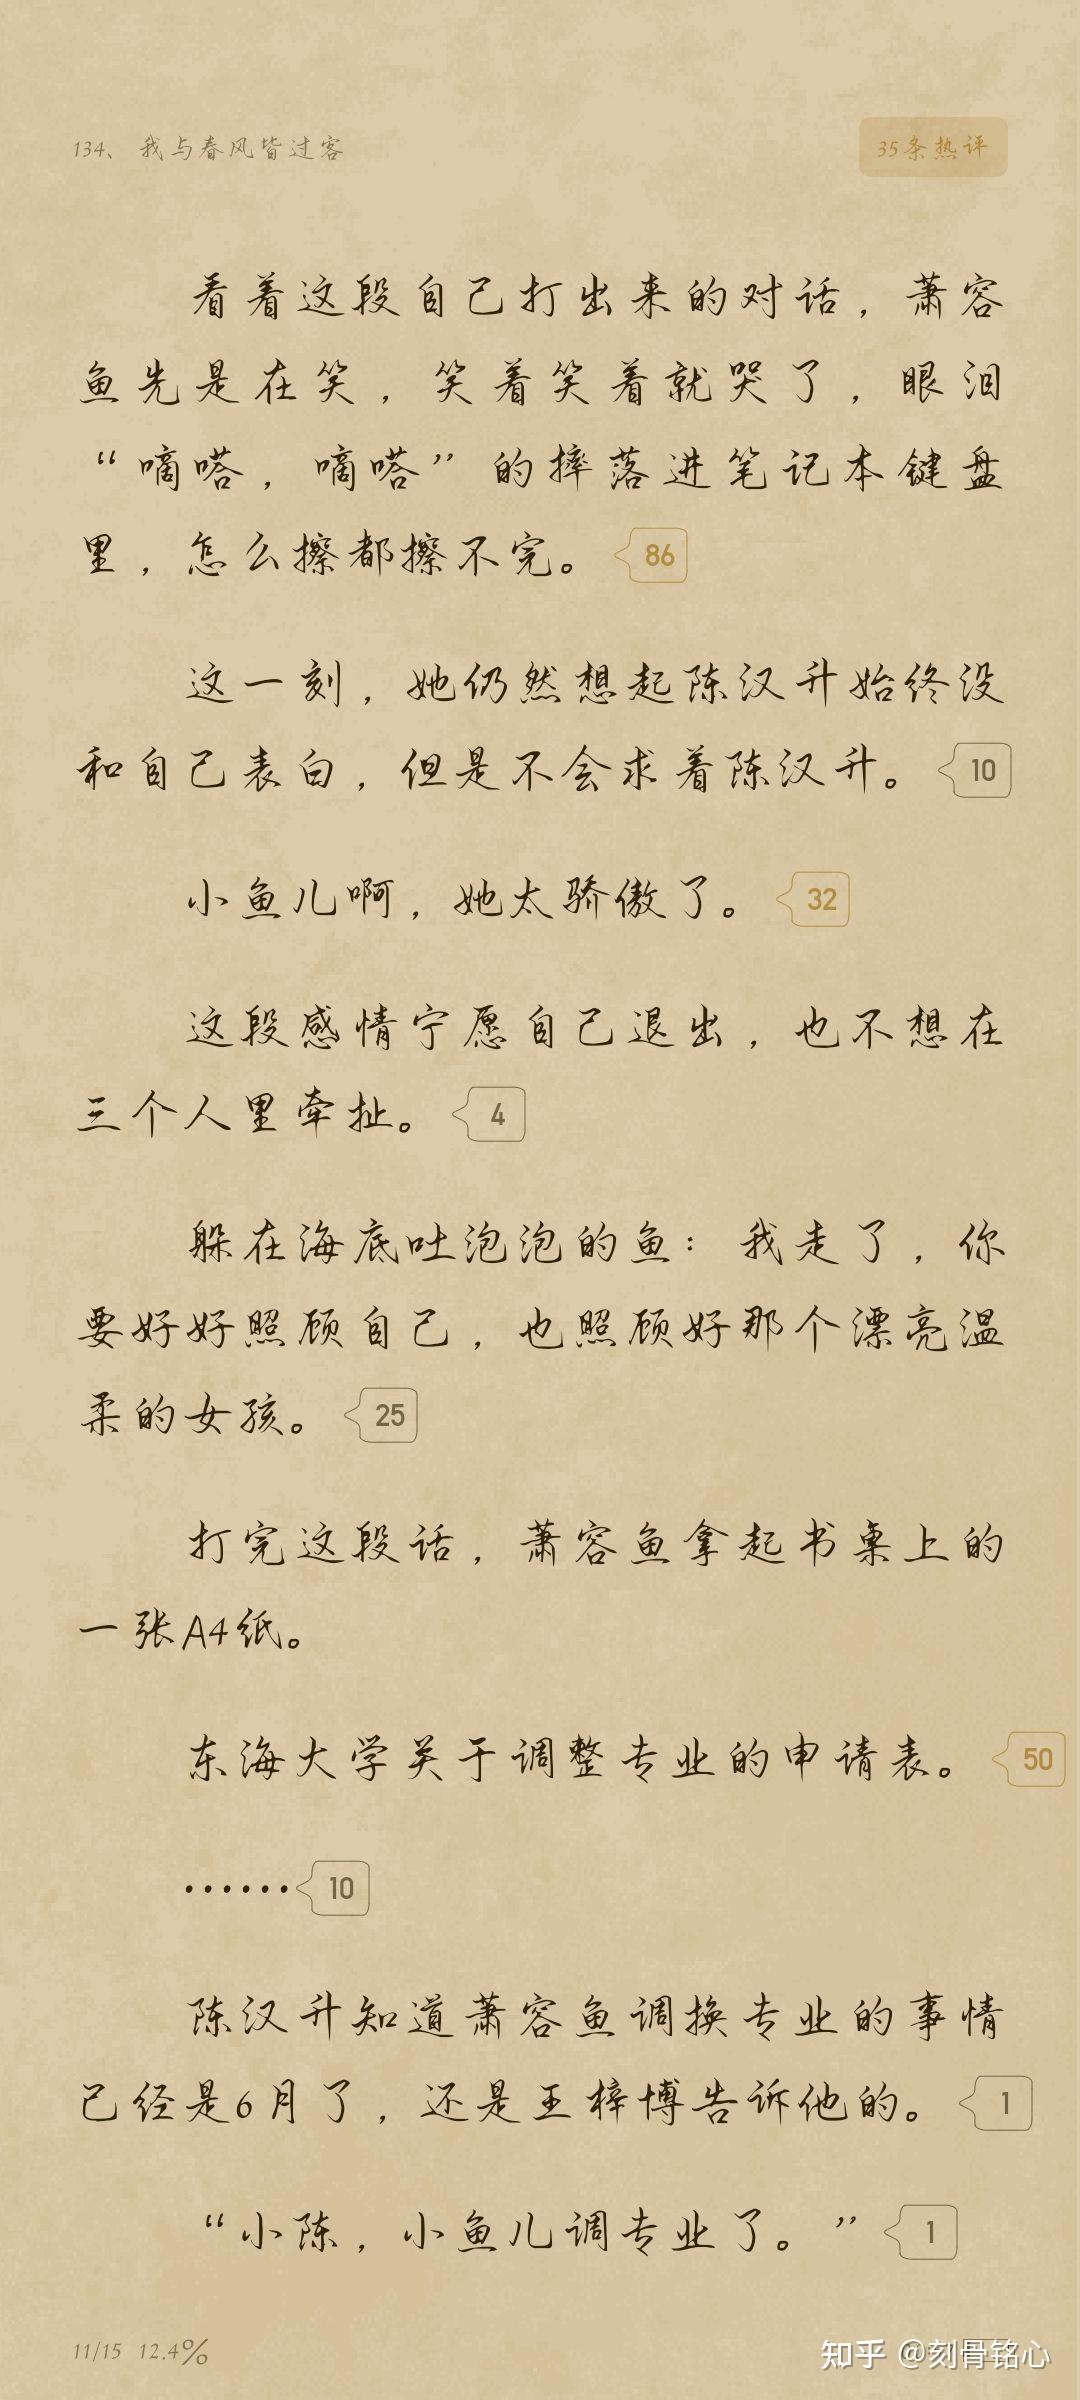 134、 我与春风皆过客
35条热评
看着这段自己打出来的对话，萧容
鱼先是在笑，笑着笑着就哭了，眼泪
“嘀嗒，嘀嗒”的摔落进笔记本键盘
里，怎么擦都擦不完。 86
这一刻，她仍然想起陈汉升始终没
和自己表白，但是不会求着陈汉升。 10
小鱼儿啊，她太骄傲了。 32
这段感情宁愿自己退出，也不想在
三个人里牵扯。 4
躲在海底吐泡泡的鱼：我走了，你
要好好照顾自己，也照顾好那个漂亮温
柔的女孩。 25
打完这段话，萧容鱼拿起书桌上的
一张A4纸。
东海大学关于调整专业的申请表。 50
······ 10
陈汉升知道萧容鱼调换专业的事情
已经是6月了，还是王梓博告诉他的。 1
“小陈，小鱼儿调专业了。” 1
11/15 12.4%
知乎 @刻骨铭心